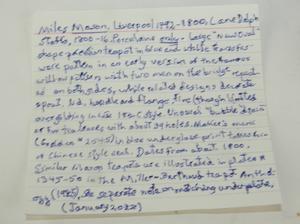 Miles Mason, Liverpool 1792-1800, Lane Delph
Staffs, 1800-16. Porcelain only - Large unusual
shape porcelain teapot in blue and white transfer
ware pattern in an early version of the famous
willow pattern with two men on the bridge repeat
on both sides, while related designs decorate
spout, lid, handle and flange. Fine (though
overglazing in the style. Unusual "bubble drain
or tea leaves with about 29 holes. Maker's mark
(Godden # 2545) in blue underglaze print
a Chinese style seal. Dates from about 1800.
Similar Mason teapots are illustrated in plates #
1345-50 in the Miller-Berthoud Teapot
(1985). See separate note on matching underplate,
(January 2022)